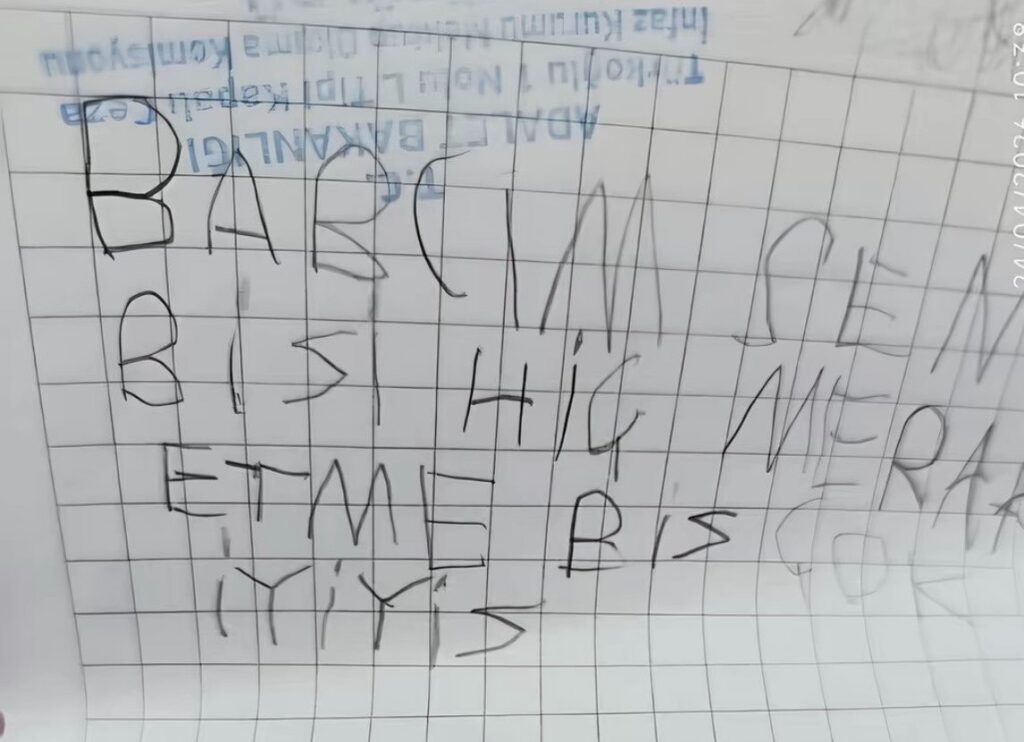 T.C.
ADALET BAKANLIĞI
Türkoğlu 1 Nolu L Tipi Kapalı Ceza
İnfaz Kurumu Mektup Okuma Komisyonu
BABCIM SEN
BİSİ HİÇ MERAK
ETME BİS ÇOK
İYİYİS
24/04/2024 10:28